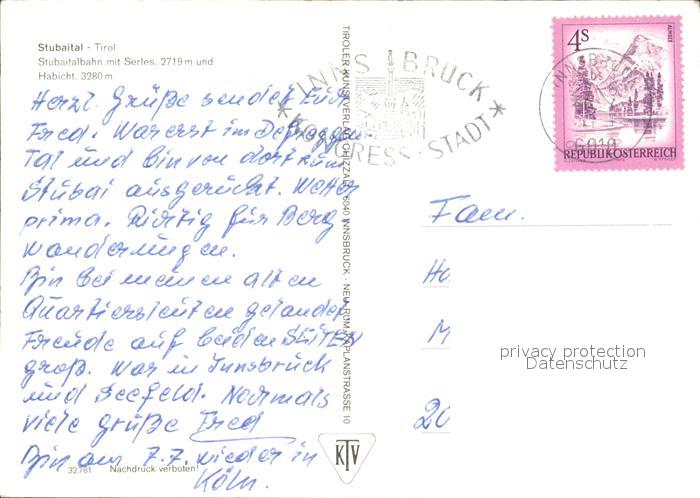 Stubaital - Tirol
Stubaitalbahn mit Serles. 2719 m und
Habicht. 3280 m
Herzl. Grüße sendet Euch
Fred. War erst im Defreggen
Tal und bin von dort zum
Stubai ausgerückt. Wetter
prima. Richtig für Berg
wanderungen.
Bin bei meinen alten
Quartiersleuten gelandet
Freude auf beiden SEITEN
groß. War in Innsbruck
und Seefeld. Nochmals
viele Grüße Fred
Bin am 7.7. wieder in
Köln.
32.781 Nachdruck verboten!
TIROLER KUNSTVERLAG CHIZZALI · 6040 INNSBRUCK · NEU-RUM, KAPLANSTRASSE 10
KTV
INNSBRUCK
* KONGRESS-STADT *
INNSBRUCK
6010
4 S
ALMSEE
REPUBLIK ÖSTERREICH
Fam.
Ho
M
20
privacy protection
Datenschutz